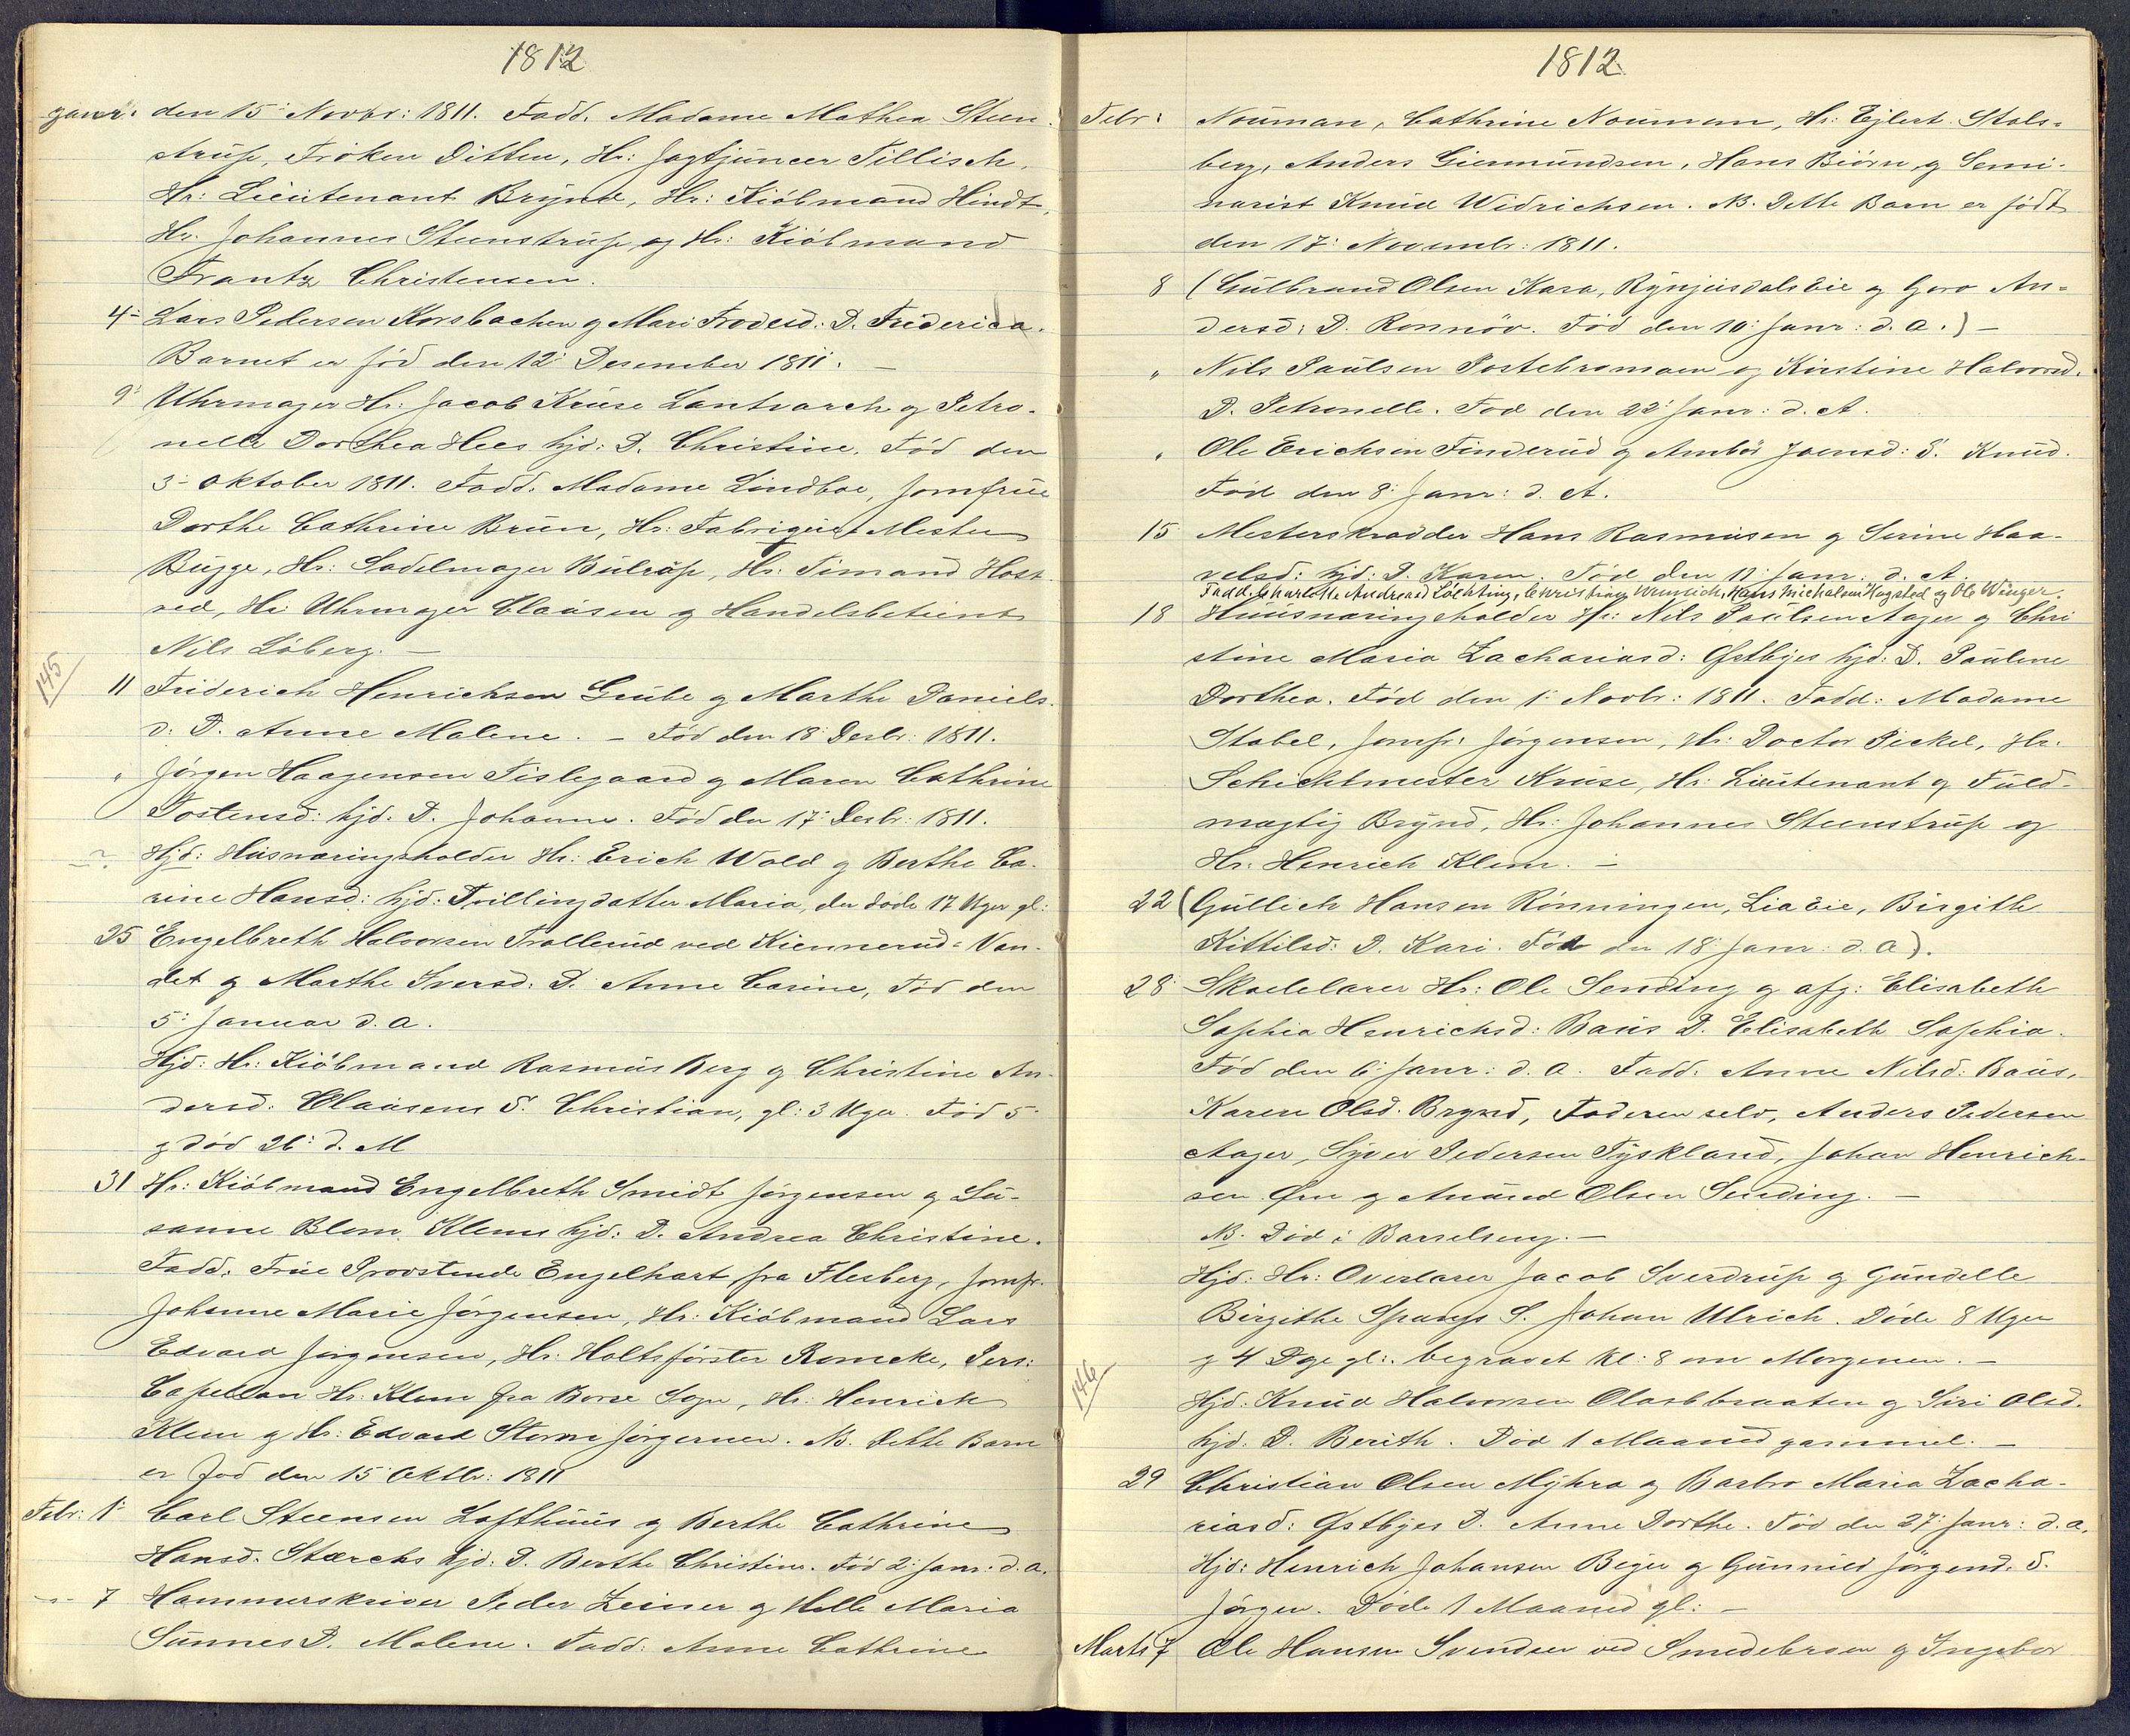 1812
Janr. den 15: Novbr: 1811. Fadd. Madame Mathea Steen-
strup, Frøken Ditten, Hr: Jagtjuncer Tillisch,
Hr: Lieutenant Brynd, Hr: Kiöbmand Hindt,
Hr. Johannes Steenstrup og Hr: Kiöbmand
Frantz Christensen.
4: Lars Pedersen Korsbachen og Mari Frodesd: D. Friderica.
Barnet er fød den 12: Desember 1811. –
9: Uhrmager Hr: Jacob Kruse Lantvarch og Petro-
nelle Dorthea Hees hjd: D. Christine. Fød den
3: Oktober 1811. Fadd. Madame Lindboe, Jomfrue
Dorthe Cathrine Brun, Hr: Fabriqeur Mester
Bugge, Hr: Sadelmager Bulrup, Hr. Simand Host-
ved, Hr: Uhrmager Clausen og Handelsbetient
Nils Löberg. –
145
11 Friderich Henrichsen Grube og Marthe Daniels-
d: D. Anne Malene. – Fød den 18: Desbr: 1811.
" Jörgen Haagensen Fislegaard og Maren Cathrine
Tostensd: hjd: D. Johanne. Fød den 17: Desbr: 1811.
Hjd: Husnæringsholder Hr: Erich Wold og Berthe Ca-
rine Hansd: hjd: Tvillingdatter Maria, der døde 17 Uger gl:
25 Engelbreth Halvorsen Trollerud ved Kiennerud-Van-
det og Marthe Iversd: D. Anne Carine, Fød den
5: Januar d. a.
Hjd: Hr: Kiöbmand Rasmus Berg og Christine An-
dersd: Clausens S. Christian, gl: 3 Uger. Fød 5:
og død 26: d. M
31 Hr: Kiöbmand Engelbreth Smidt Jörgensen og Su-
sanne Blom Klems hjd: D. Andrea Christine.
Fadd. Frue Provstinde Engelhart fra Flesberg, Jomfr.
Johanne Marie Jörgensen, Hr: Kiöbmand Lars
Edvard Jörgensen, Hr: Holtsförster Romcke, Pers:
Capellan Hr: Klem fra Borse Sogn, Hr: Henrich
Klem og Hr: Edvard Storm Jörgensen. NB. Dette Barn
er fød den 15: Oktbr: 1811
Febr: 1: Carl Steensen Lofthuus og Berthe Cathrine
Hansd: Stærchs hjd: D. Berthe Christine. Fød 2: Janr: d. a.
7 Hammerskriver Peder Zeiner og Helle Maria
Sunnes D. Malene. Fadd: Anne Cathrine
1812
Febr: Nouman, Cathrine Nouman, Hr: Ejlert Stals-
berg, Anders Giermundsen, Hans Biörn og Semi-
narist Knud Widrichsen. NB. Dette Barn er født
den 17: Novembr: 1811.
8 (Gulbrand Olsen Kara, Rynjusdals Eie og Goro An-
dersd: D. Ronnöv. Fød den 10: Janr: d. a.) –
" Nils Paulsen Postebromoen og Kirstine Halvorsd:
D. Petronelle. Fød den 22: Janr: d. A.
" Ole Erichsen Finderud og Ambör Joensd: S. Knud.
Fød den 8: Janr: d. A.
15 Mesterskradder Hans Rasmusen og Serine Haa-
velsd: hjd: D. Karen. Fød den 11: Janr: d. A.
Fadd. Charlotte Andreasd Löchting, Christian Wrunich, Hans Michalsen Hagsted og Ole Winger.
18 Huusnæringsholder Hr: Nils Paulsen Aager og Chri
stine Maria Zachariasd: Østbyes hjd: D. Pauline
Dorthea. Fød den 1: Novbr: 1811. Fadd: Madame
Stabel, Jomfr: Jörgensen, Hr: Doctor Pickel, Hr:
Schichtmester Kruse, Hr: Lieutenant og Fuld-
mægtig Brynd, Hr: Johannes Steenstrup og
Hr: Henrich Klem. –
22 (Gullich Hansen Rönningen, Lia Eie, Birgith
Kittilsd: D. Kari. Fød den 18: Janr: d. a).
28: Skoelelærer Hr: Ole Sending og afg: Elisabeth
Sophia Henrichsd: Baus D. Elisabeth Sophia.
Fød den 6: Janr: d. a. Fadd: Anne Nilsd: Baus,
Karen Olsd. Brynd, Faderen selv, Anders Pedersen
Aager, Syver Pedersen Tyskland, Johan Henrich-
sen Örn og Amund Olsen Sending. –
NB. Død i Barselseng. –
Hjd: Hr: Overlærer Jacob Sverdrup og Gundelle
Birgithe Spangs S. Johan Ulrich. Døde 8 Uger
og 4 Dge gl:. begravet Kl: 8 om Morgenen. –
146
Hjd: Knud Halvorsen Olasbraaten og Siri Olsd.
hjd. D. Berith. Død 1 Maaned gammel. –
29 Christian Olsen Myhra og Barbro Maria Zacha-
riasd: Østbyes D. Anne Dorthe. Fød den 27: Janr: d. a.
Hjd: Henrich Johansen Beyer og Gunnild Jörgensd. S.
Jörgen. Døde 1 Maaned gl: –
Marts 7 Ole Hansen Svendsen ved Smedebroen og Ingebor